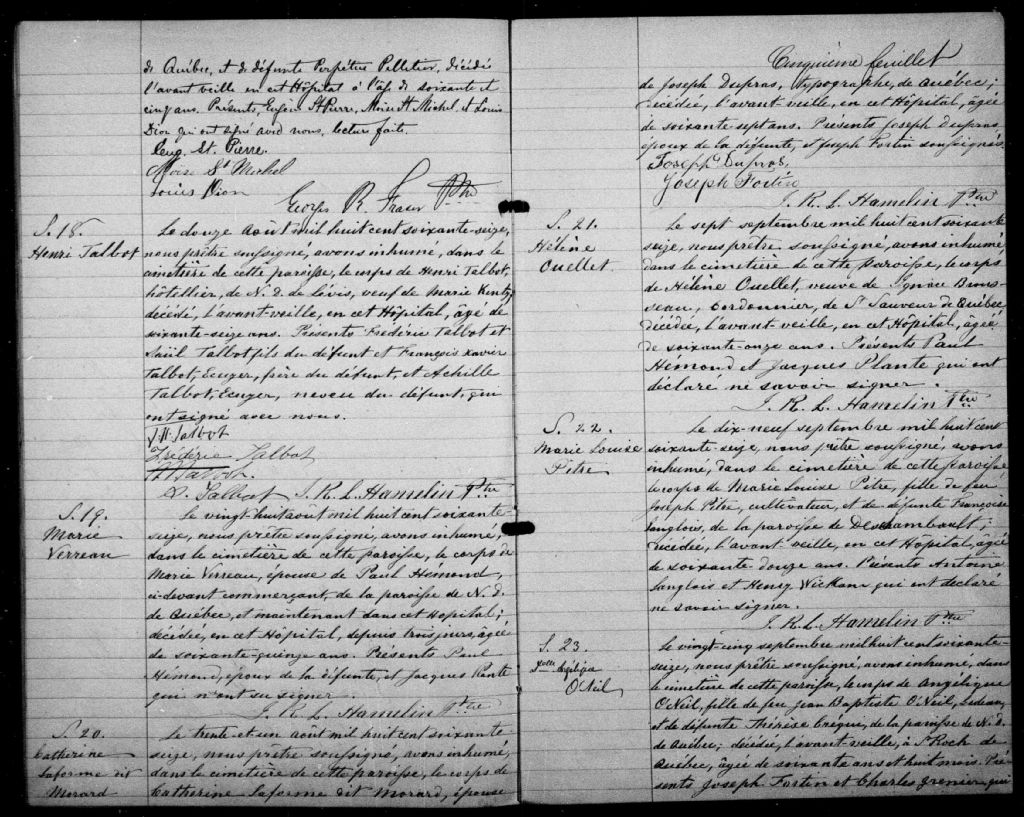 de Québec, et de défunte Perpétue Pelletier, décédé
l'avant veille en cet Hôpital à l'âge de soixante et
cinq ans. Présents, Eugène St Pierre, Moïse St Michel et Louis
Dion qui ont signé avec nous, lecture faite.
Eug. St. Pierre.
Moïse St Michel
Louis Dion
George R. Fraser Ptre
S. 18.
Henri Talbot
Le douze août mil huit cent soixante-seize,
nous prêtre soussigné, avons inhumé, dans le
cimetière de cette paroisse, le corps de Henri Talbot,
hôtellier, de N. D. de Lévis, veuf de Marie
décédé, l'avant-veille, en cet Hôpital, âgé de
soixante-seize ans. Présents Frédéric Talbot et
Saül Talbot fils du défunt et François Xavier
Talbot, Ecuyer, frère du défunt, et Achille
Talbot, Ecuyer, neveu du défunt, qui
ont signé avec nous.
Talbot
Frédéric Talbot
Talbot.
Talbot J. R. L. Hamelin Ptre
S. 19.
Marie
Verreau
Le vingt-huit août mil huit cent soixante-
seize, nous prêtre soussigné, avons inhumé,
dans le cimetière de cette paroisse, le corps de
Marie Verreau, épouse de Paul Hémond,
ci-devant commerçant, de la paroisse de N. D.
de Québec, et maintenant dans cet Hopital;
décédée, en cet Hôpital, depuis trois jours, âgée
de soixante-quinze ans. Présents Paul
Hémond, époux de la défunte, et Jacques Plante
qui n'ont su signer.
J. R. L. Hamelin Ptre
S. 20.
Catherine
Laforme dit
Morard
Le trente-et un août mil huit cent soixante
seize, nous prêtre soussigné, avons inhumé,
dans le cimetière de cette paroisse, le corps de
Catherine Laforme dit Morard, épouse
Cinquième feuillet
de Joseph Dupras, typographe, de Québec;
décédée, l'avant veille, en cet Hôpital, âgée
de soixante sept ans. Présents Joseph Dupras
époux de la défunte, et Joseph Fortin soussignés
Joseph Dupras,
Joseph Fortin
J. R. L. Hamelin Ptre
S. 21.
Hélène
Ouellet.
Le sept septembre mil huit cent soixante
seize, nous prêtre soussigné, avons inhumé,
dans le cimetière de cette paroisse, le corps
de Hélène Ouellet, veuve de Ignace Brous-
seau, cordonnier, de St Sauveur de Québec,
décédée, l'avant-veille, en cet Hôpital, âgée
de soixante-onze ans. Présents Paul
Hémond et Jacques Plante qui ont
déclaré ne savoir signer.
J. R. L. Hamelin Ptre
S. 22.
Marie Louise
Pitre
Le dix-neuf septembre mil huit cent
soixante-seize, nous prêtre soussigné, avons
inhumé, dans le cimetière de cette paroisse
le corps de Marie Louise Pitre, fille de feu
Joseph Pitre, cultivateur, et de défunte Françoise
Langlois, de la paroisse de Deschambault;
décédée, l'avant-veille, en cet Hôpital, âgée
de soixante-douze ans. Présents Antoine
Langlois et Henry Wickam qui ont déclaré
ne savoir signer.
J. R. L. Hamelin Ptre
S. 23.
Angélique
O'Neil
Le vingt-cinq septembre mil huit cent soixante-
seize, nous prêtre soussigné, avons inhumé, dans
le cimetière de cette paroisse, le corps de Angélique
O'Neil, fille de feu Jean Baptiste O'Neil, bedeau,
et de défunte Thérèse Créqui, de la paroisse de N. D.
de Québec; décédée, l'avant-veille, à St Roch de
Québec, âgée de soixante ans et huit mois. Pré-
sents Joseph Fortin et Charles Grenier, qui